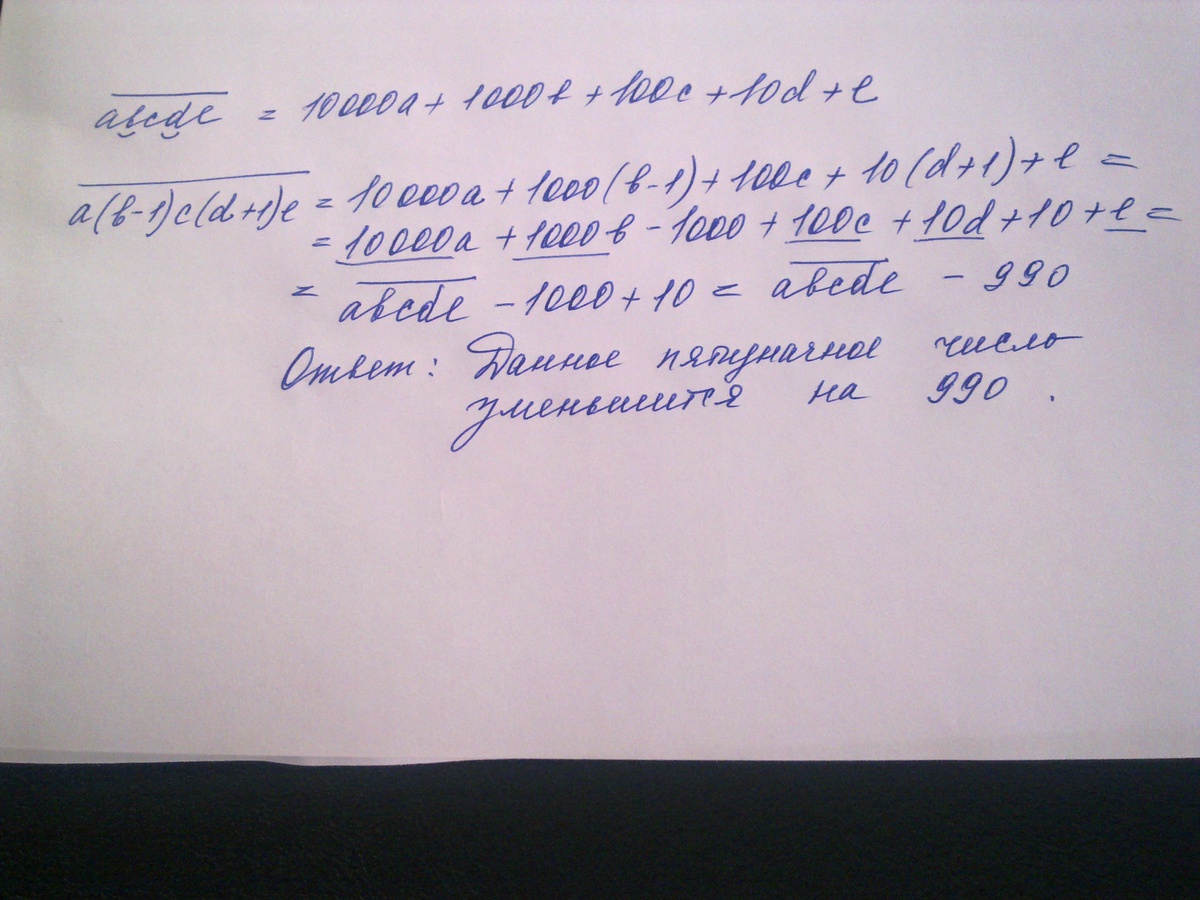 abcde = 10000a + 1000b + 100c + 10d + e
a(b-1)c(d+1)e = 10000a + 1000(b-1) + 100c + 10(d+1) + e =
= 10000a + 1000b - 1000 + 100c + 10d + 10 + e =
= abcde - 1000 + 10 = abcde - 990
Ответ: Данное пятизначное число
уменьшится на 990.